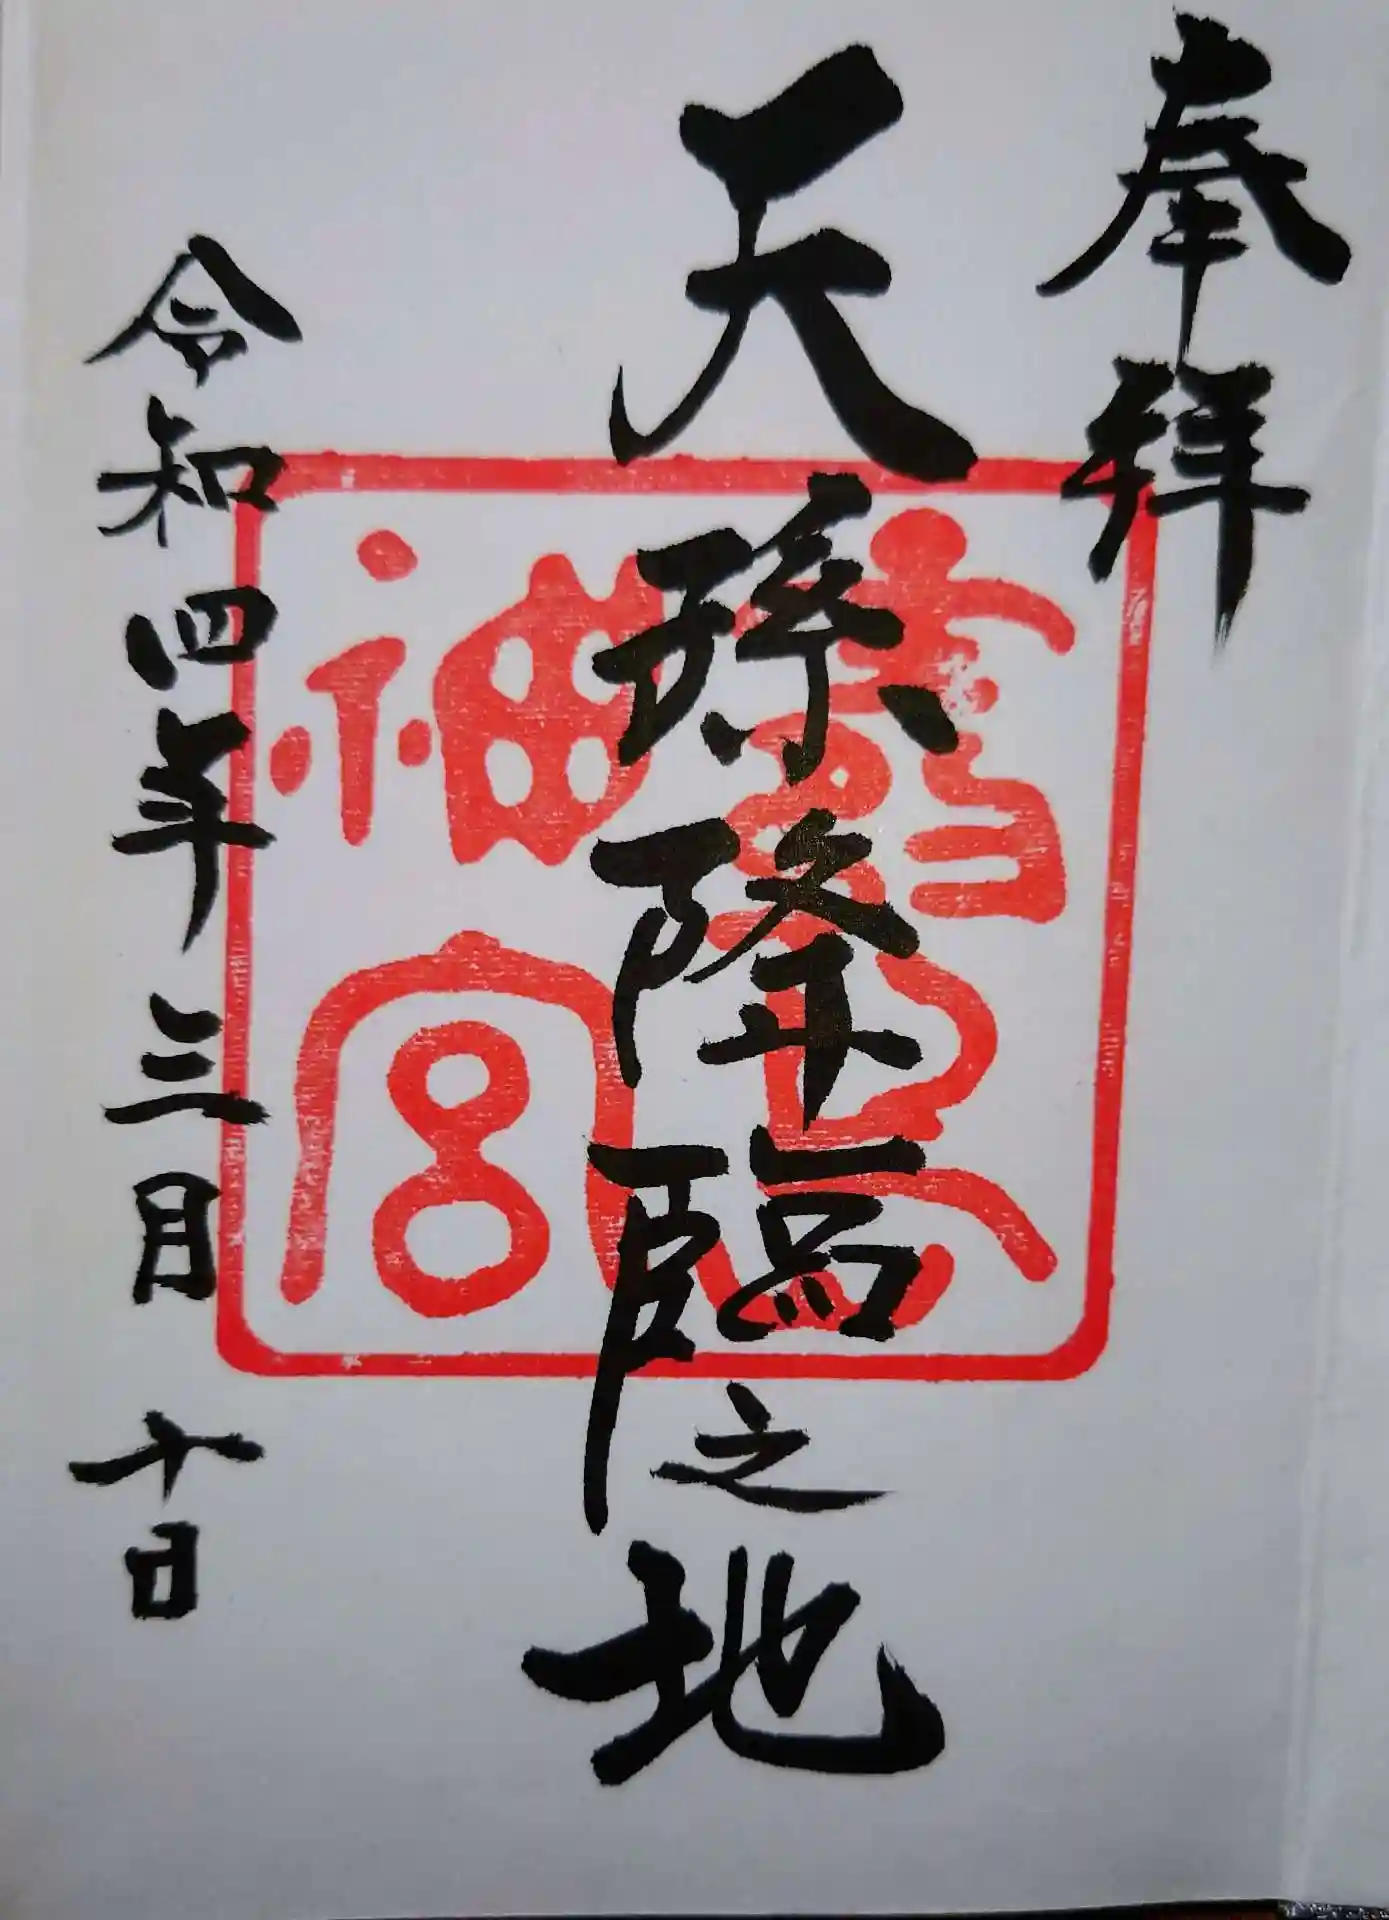 奉拝
天孫降臨之地
霧島
神宮
令和四年三月十日